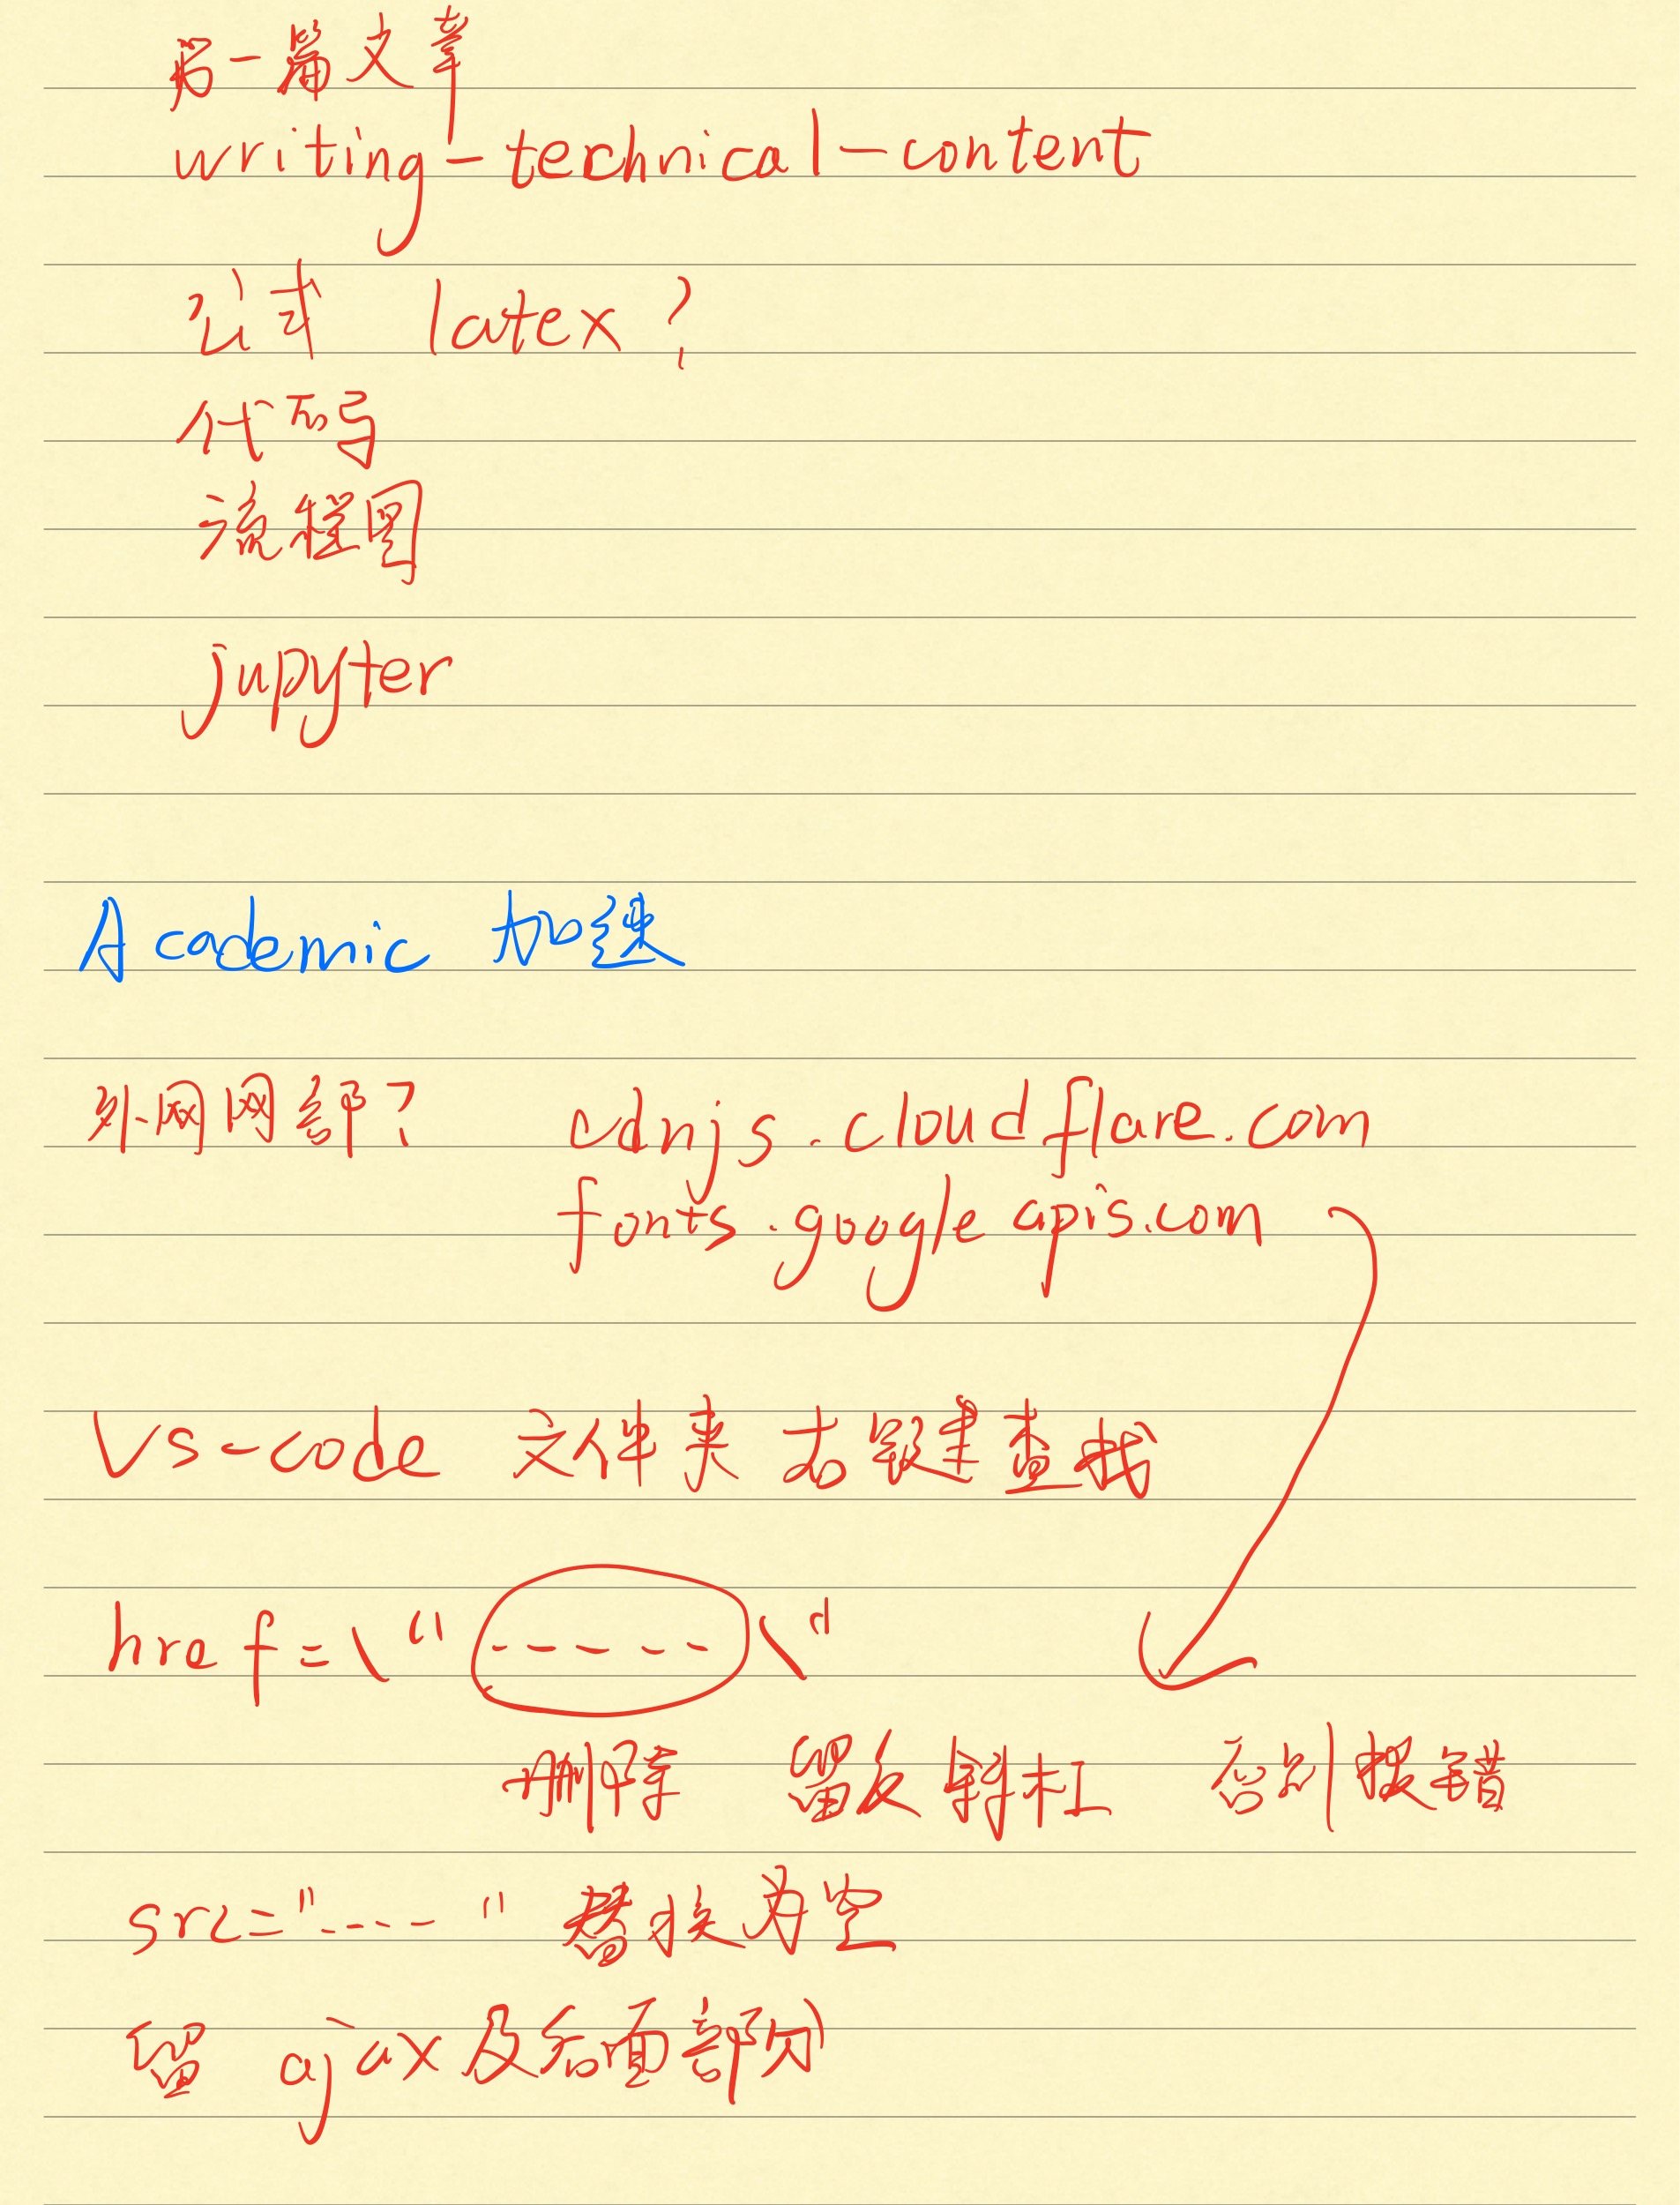 第一篇文章
writing-technical-content
公式 latex?
代码
流程图
jupyter
Academic 加速
外网网部? cdnjs.cloudflare.com
fonts.googleapis.com
Vs-code 文件夹 右键查找
href=\"-----\"
删除 留反斜杠 否则报错
src="----" 替换为空
留 ajax及后面部分